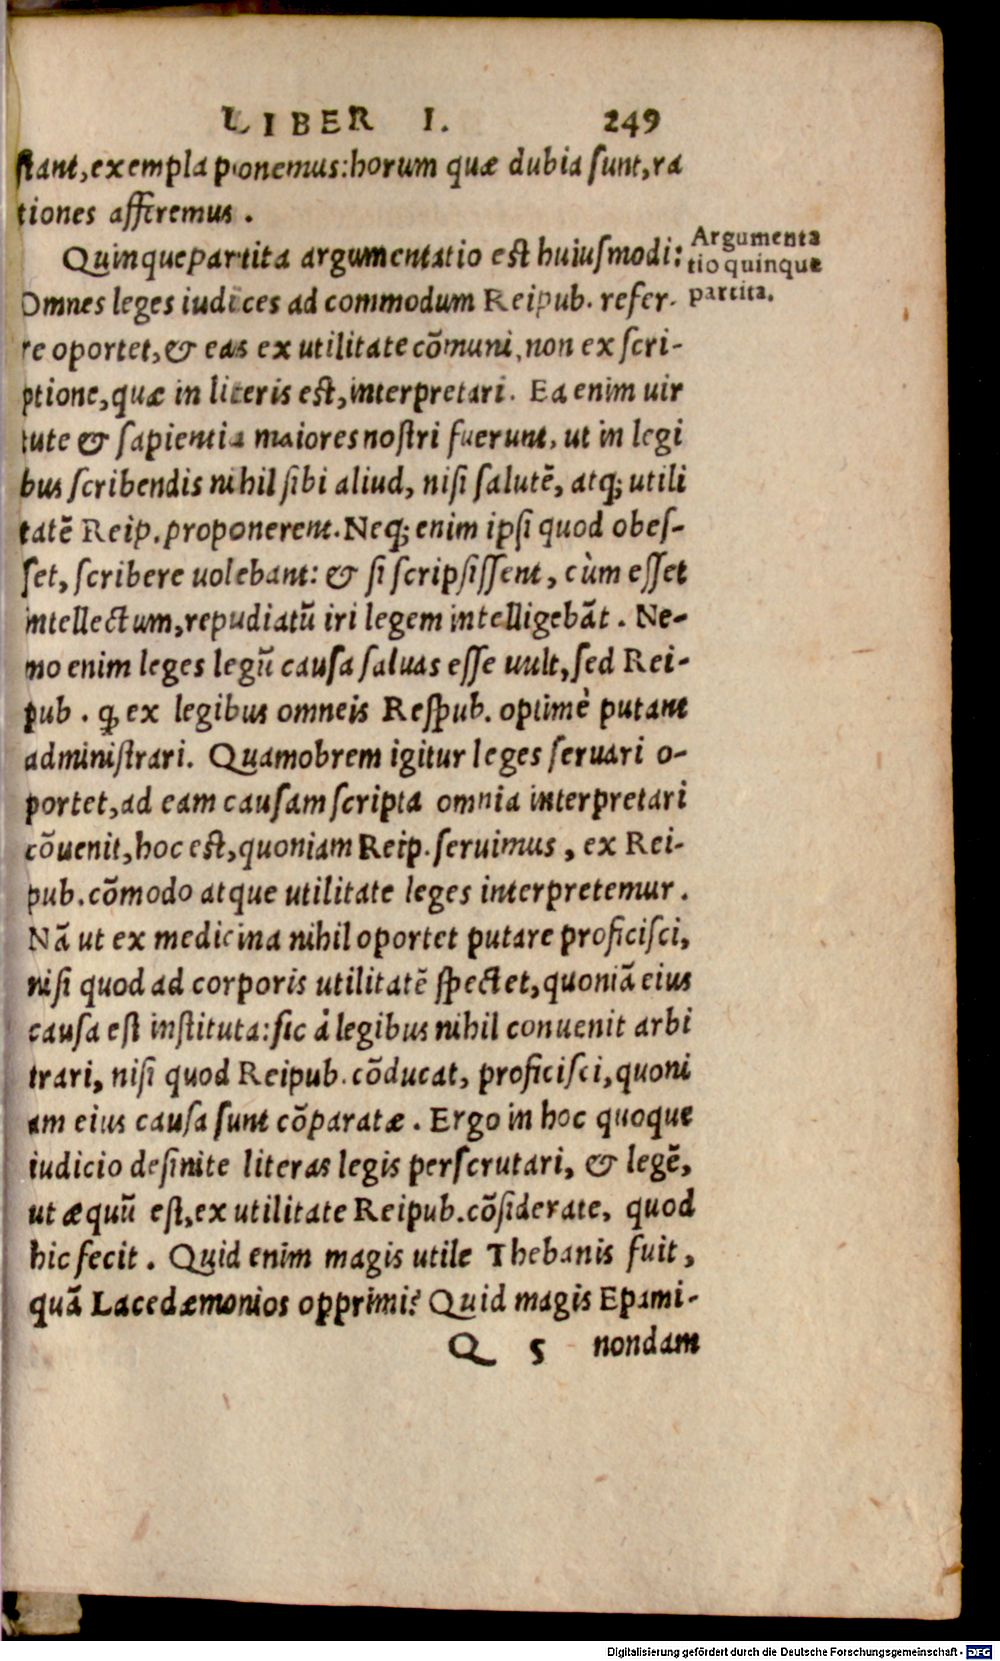 LIBER I. 249
stant, exempla ponemus: horum quæ dubia sunt, ra
tiones afferemus.
Quinquepartita argumentatio est huiusmodi:
Argumenta
tio quinque
partita.
Omnes leges iudices ad commodum Reipub. refer-
re oportet, & eas ex utilitate cōmuni, non ex scri-
ptione, quæ in literis est, interpretari. Ea enim uir
tute & sapientia maiores nostri fuerunt, ut in legi
bus scribendis nihil sibi aliud, nisi salutē, atq; utili
tatē Reip. proponerent. Neq; enim ipsi quod obes-
set, scribere uolebant: & si scripsissent, cùm esset
intellectum, repudiatū iri legem intelligebāt. Ne-
mo enim leges legū causa saluas esse uult, sed Rei-
pub. ꝙ ex legibus omneis Respub. optimè putant
administrari. Quamobrem igitur leges seruari o-
portet, ad eam causam scripta omnia interpretari
cōuenit, hoc est, quoniam Reip. seruimus, ex Rei-
pub. cōmodo atque utilitate leges interpretemur.
Nā ut ex medicina nihil oportet putare proficisci,
nisi quod ad corporis utilitatē spectet, quoniā eius
causa est instituta: sic à legibus nihil conuenit arbi
trari, nisi quod Reipub. cōducat, proficisci, quoni
am eius causa sunt cōparatæ. Ergo in hoc quoque
iudicio desinite literas legis perscrutari, & legē,
ut æquū est, ex utilitate Reipub. cōsiderate, quod
hic fecit. Quid enim magis utile Thebanis fuit,
quā Lacedæmonios opprimi? Quid magis Epami-
Q 5 nondam
Digitalisierung gefördert durch die Deutsche Forschungsgemeinschaft - DFG